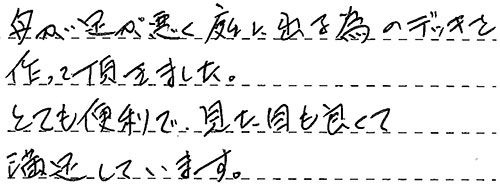 母が、足が悪く庭に出る為のデッキを
作って頂きました。
とても便利で、見た目も良くて
満足しています。